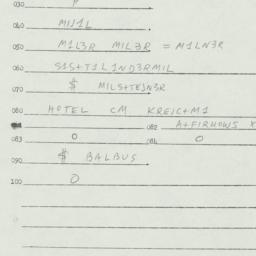 030 P
040 MIJ1L
050 M1L3R MIL3R = M1LN3R
060 S1S+T1L 1ND3RMIL
070 $ MILS+TEJN3R
080 HOTEL CM KREJC+M1
082 A+FIRHOWS X
083 O 084 O
090 $ BALBUS
100 O